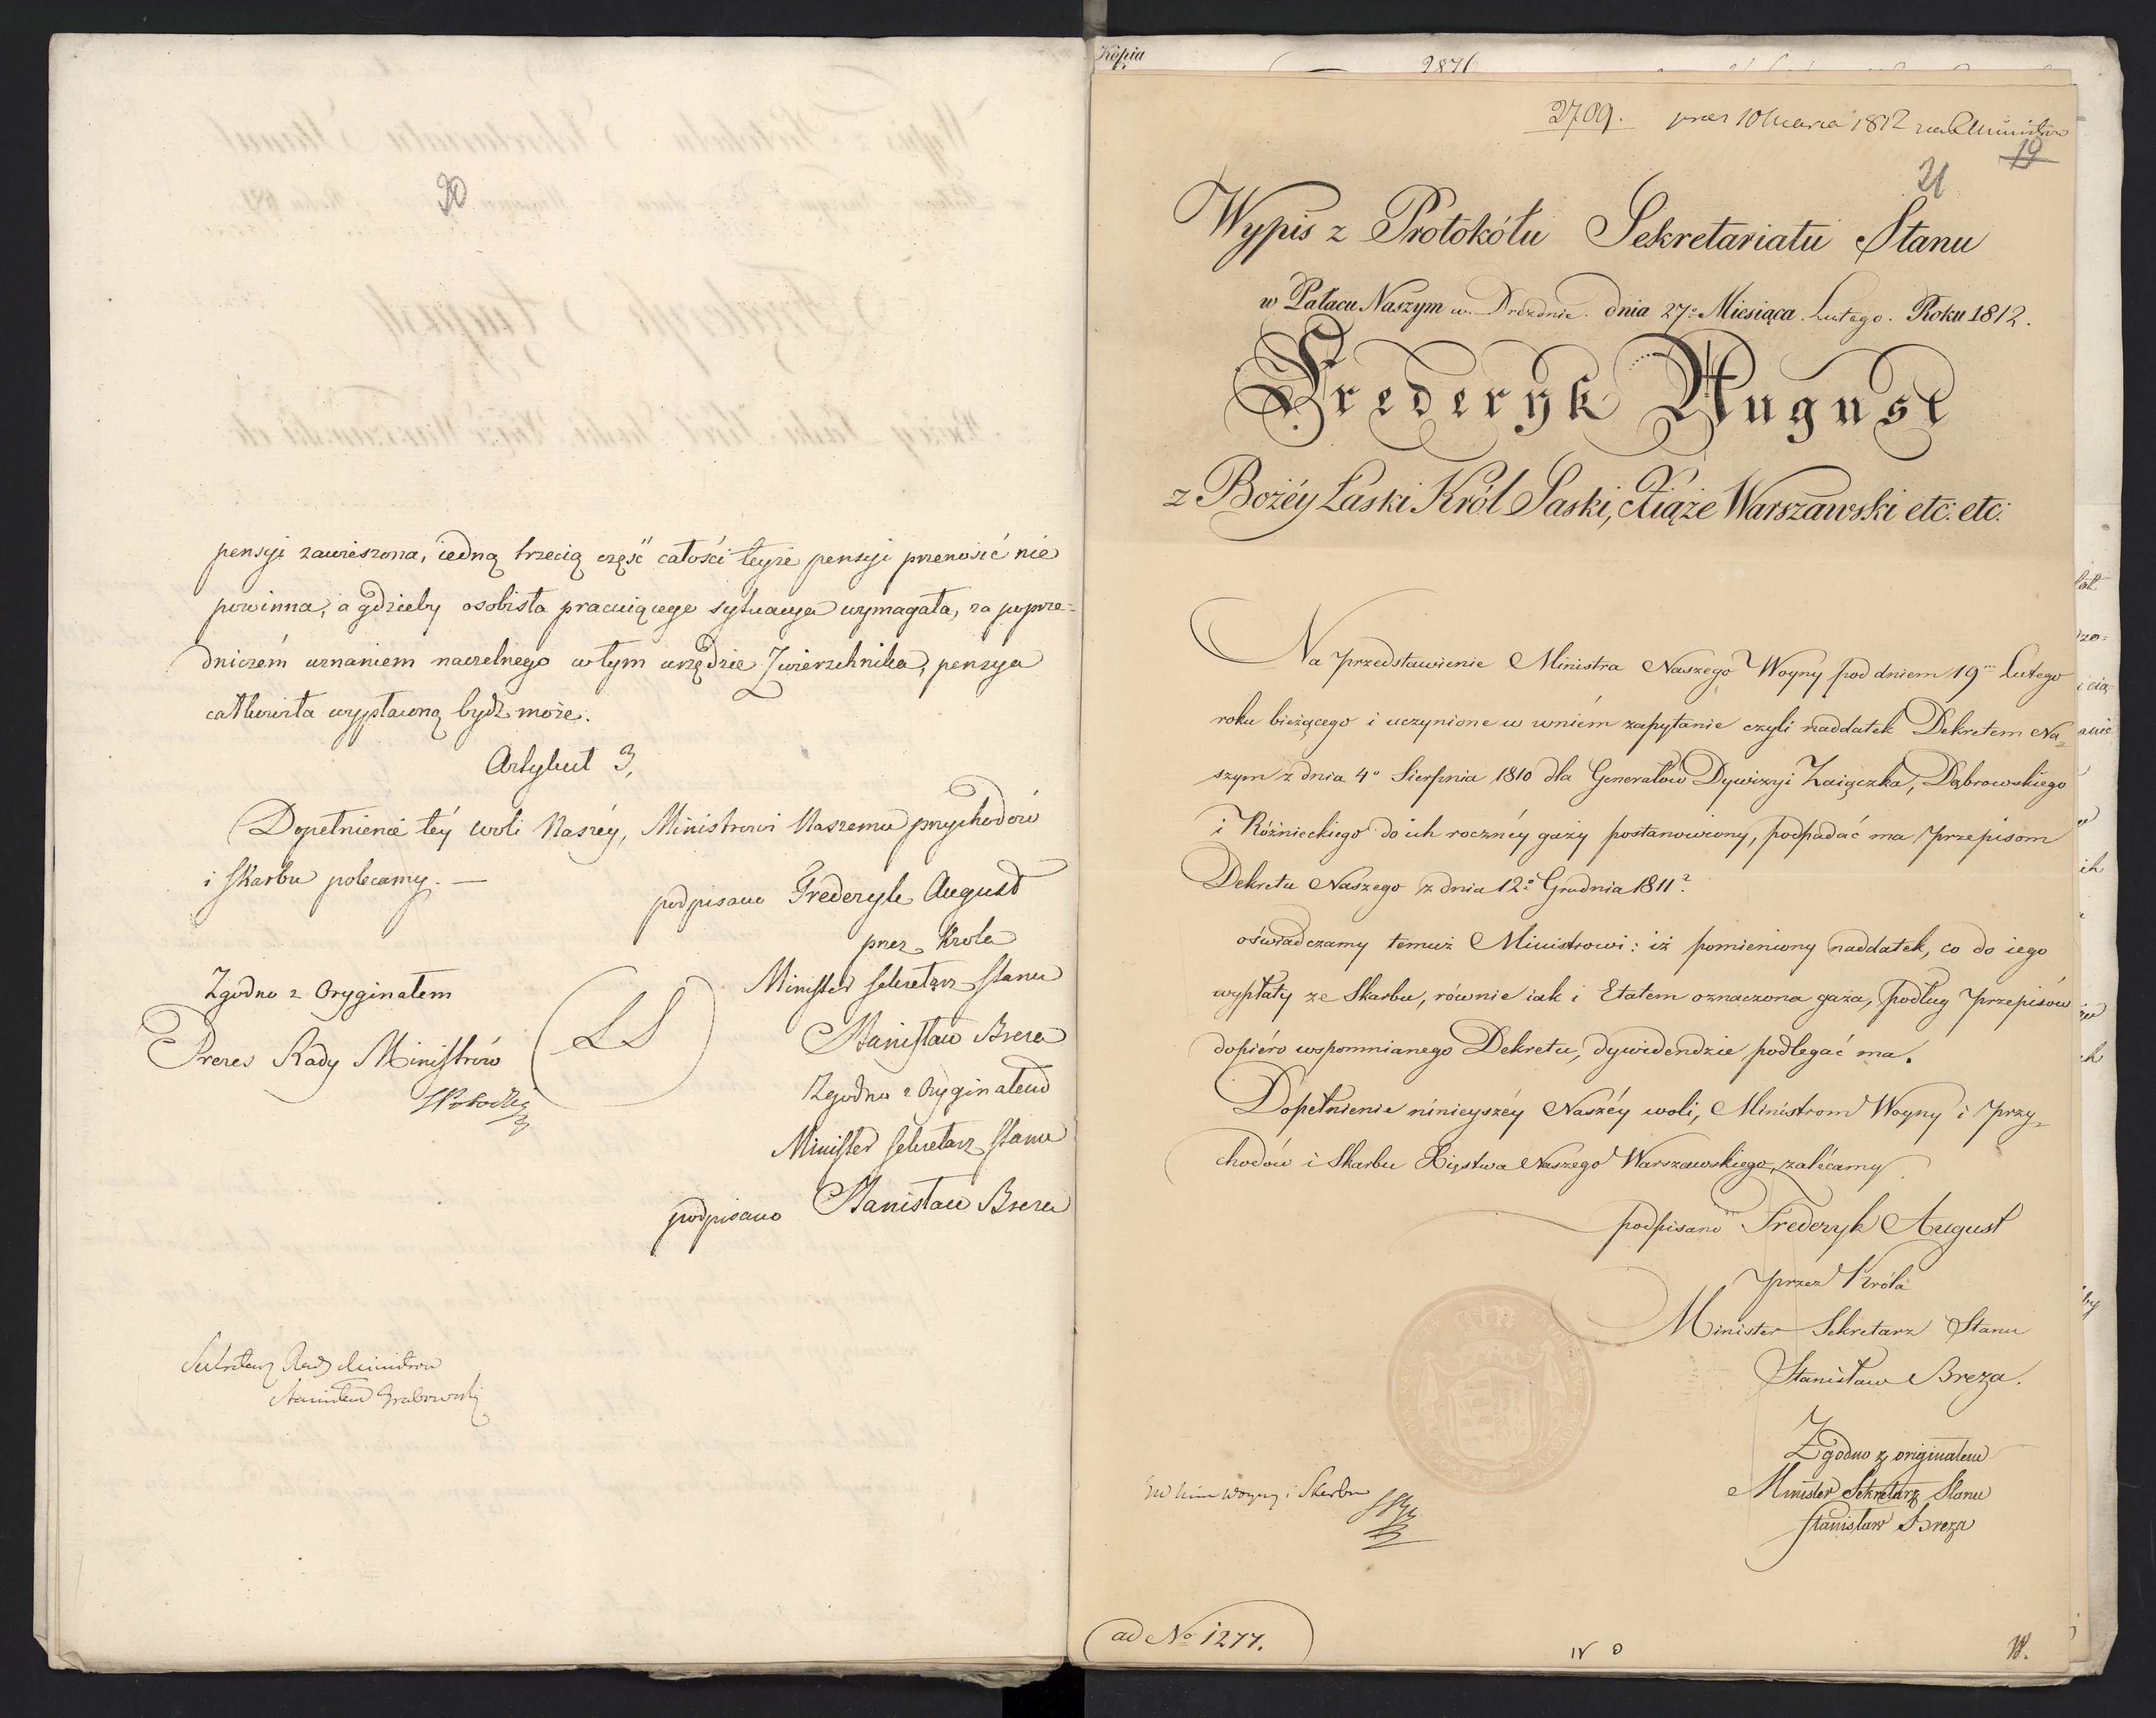 20
pensyi zawieszona, iedną trzecią część całości teyże pensyi przenosić nie
powinna, a gdzieby osobista pracuiącego sytuacya wymagała, za poprze=
dniczém uznaniem naczelnego w tym urzędzie Zwierzchnika, pensya
całkowita wypłacona bydź może.
Artykuł 3,
Dopełnienie téy woli Naszéy, Ministrowi Naszemu przychodów
i Skarbu polecamy. —
podpisano Fréderyk August
przez Króla
Minister Sekretarz Stanu
Stanisław Breza
Zgodno z Oryginałem
Minister Sekretarz Stanu
podpisano Stanisław Breza
Zgodno z Oryginałem
Prezes Rady Ministrów
LS
Sekretarz Rady Ministrów
Stanisław Grabowski
Kopia
2876
2709. prez 10 Marca 1812 Ministrów
19
21
Wypis z Protokółu Sekretariatu Stanu
w Pałacu Naszym w Dreznie dnia 27º Miesiąca Lutego. Roku 1812.
Frederyk August
z Bożéy Łaski Król Saski, Xiąże Warszawski etc: etc:
Na przedstawienie Ministra Naszego Woyny pod dniem 19 Lutego
roku bieżącego i uczynione w wniém zapytanie czyli naddatek Dekretem Na=
szym z dnia 4º Sierpnia 1810 dla Generałów Dywizyi Zaiączka, Dąbrowskiego
i Różnieckiego do ich rocznéy gaży postanowiony, podpadać ma przepisom
Dekretu Naszego z dnia 12º Grudnia 1811
oświadczamy temuż Ministrowi: iż pomieniony naddatek, co do iego
wypłaty ze Skarbu, równie iak i Etatem oznaczona gaża, podług przepisów
dopiéro wspomnianego Dekretu, dywidendzie podlegać ma.
Dopełnienie ninieyszéy Naszéy woli, Ministrom Woyny i Przy=
chodów i Skarbu Xięstwa Naszego Warszawskiego, zalécamy
podpisano Frederyk August
przez Króla
Minister Sekretarz Stanu
Stanisław Breza.
Zgodno z originałem
Minister Sekretarz Stanu
Stanisław Breza
Woyny i Skarbu
ad No 1277.